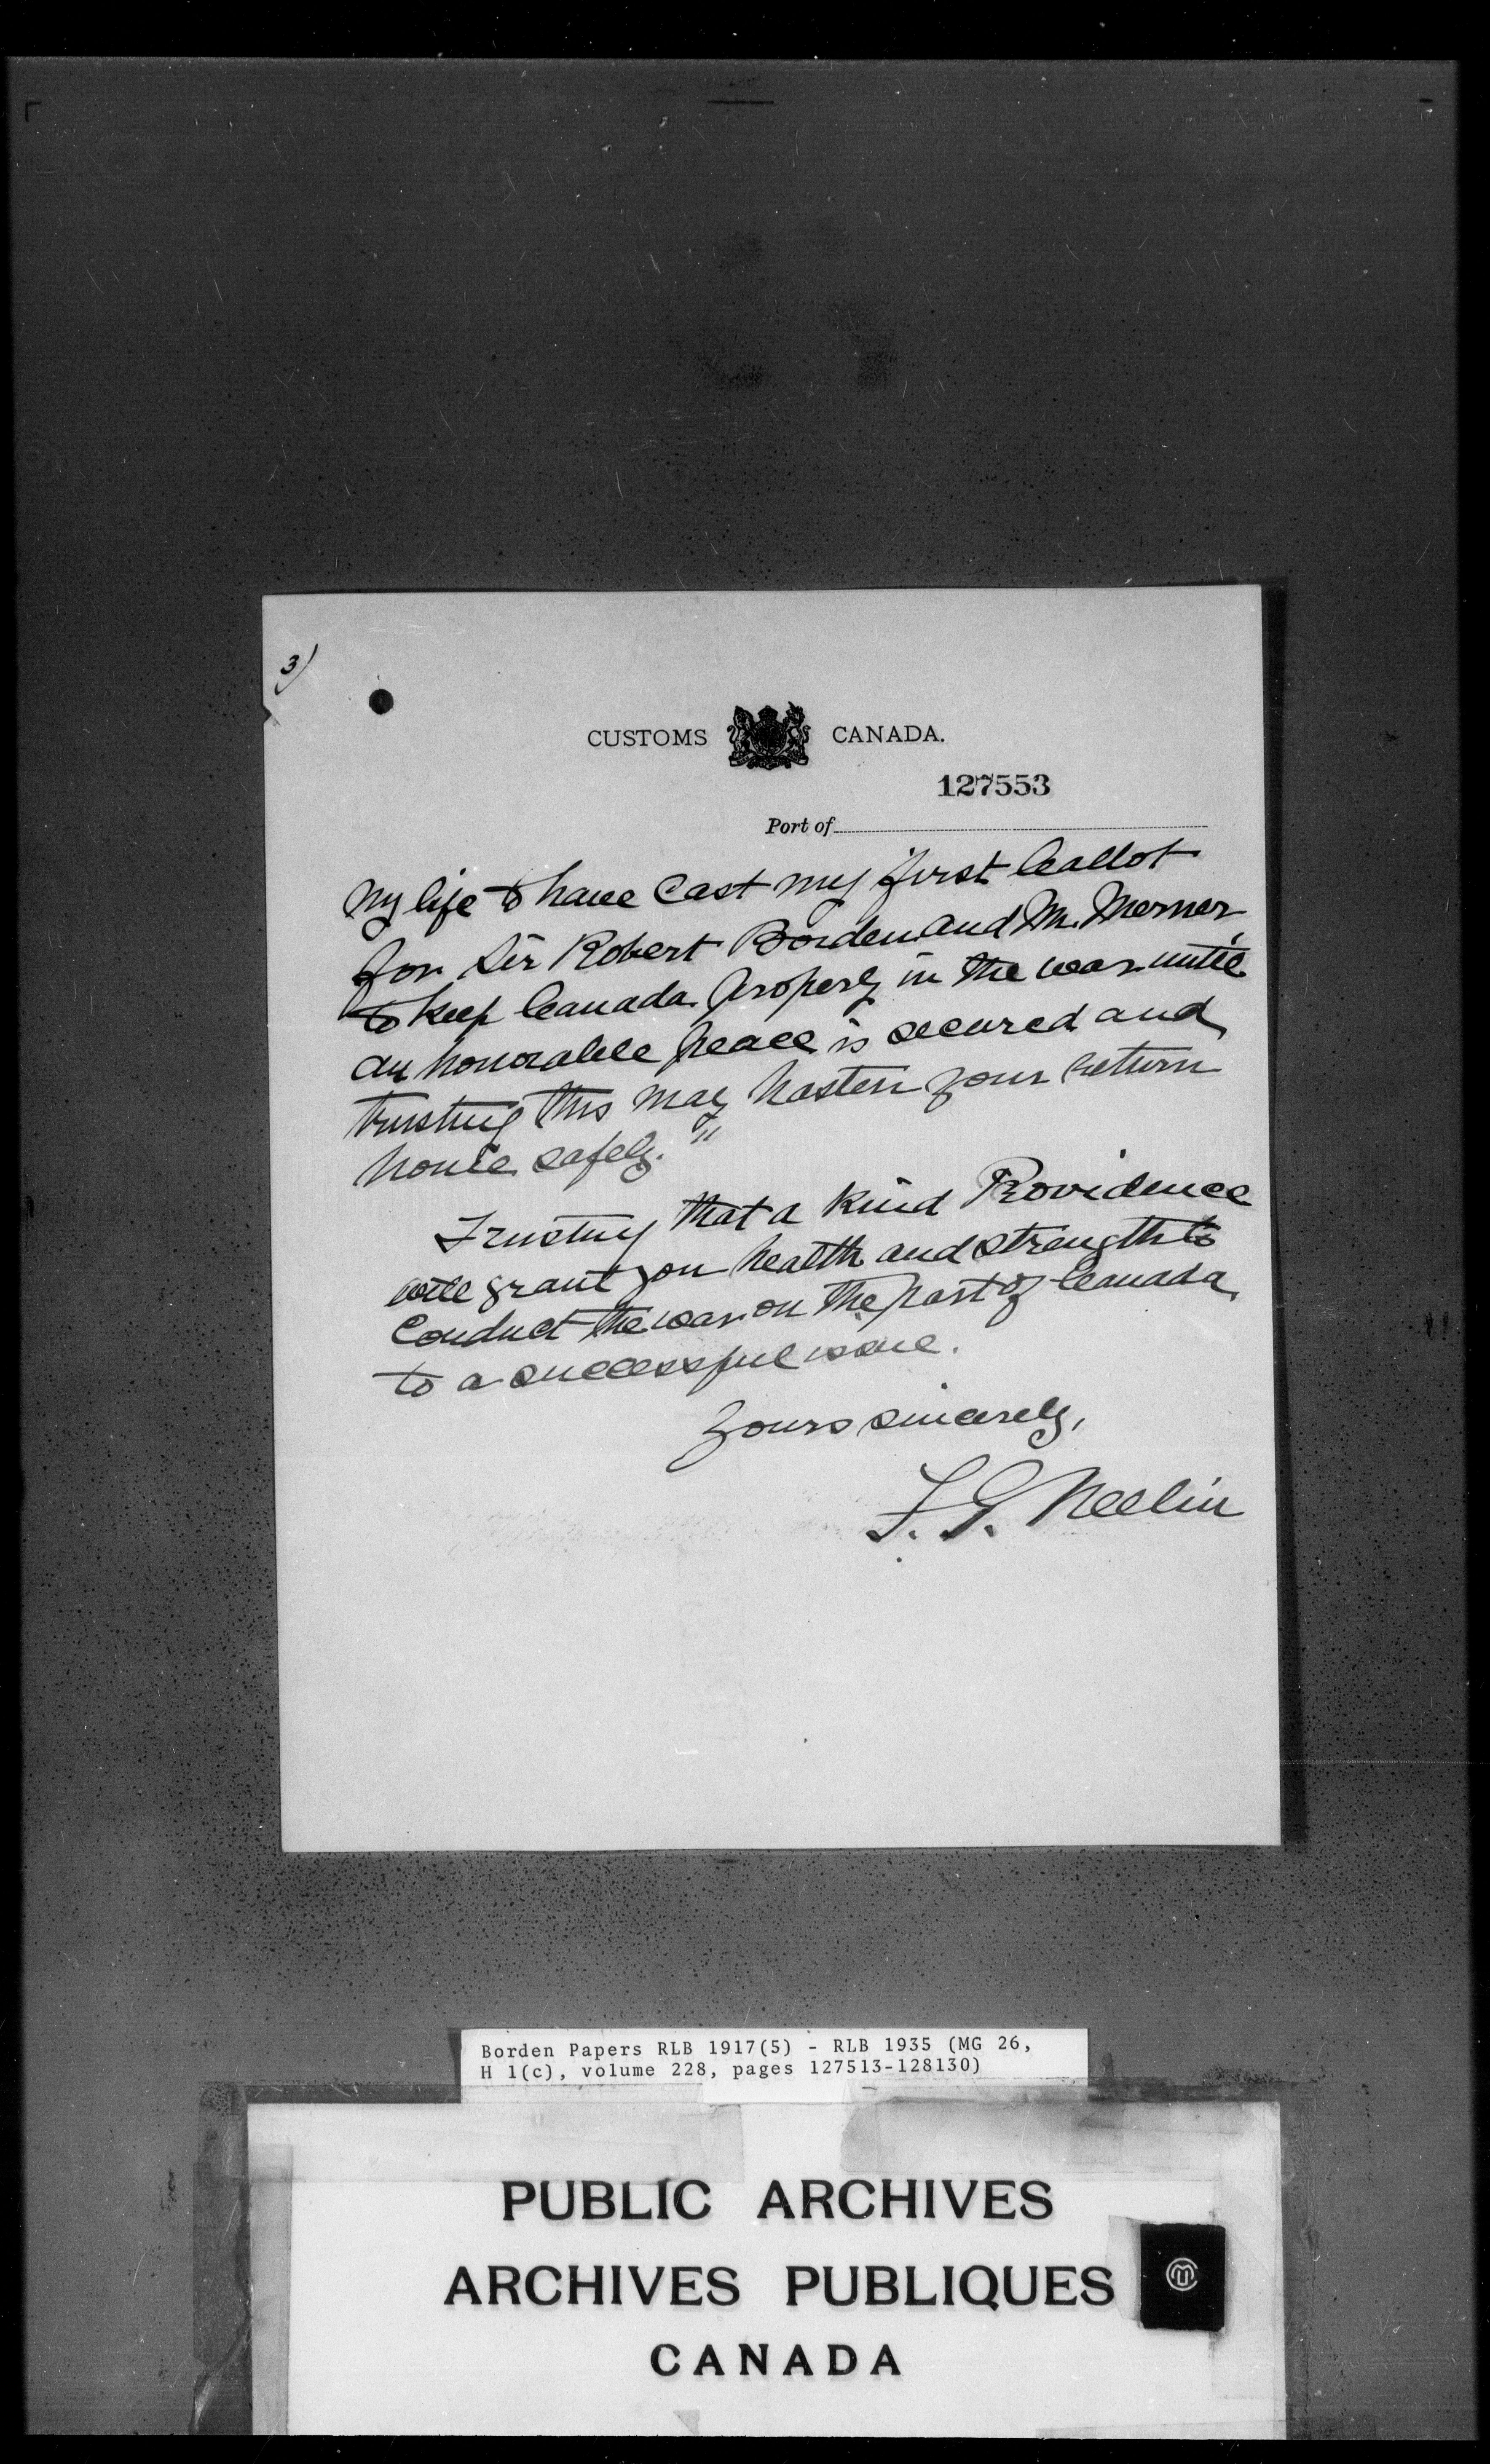 3)
CUSTOMS CANADA.
127553
Port of
My life to have Cast my first ballot
for Sir Robert Borden and Mr. Merner
to keep Canada properly in the war until
an honorable peace is secured and
trusting this may hasten your return
home safely."
Trusting that a kind Providence
will grant you health and strength to
Conduct the war on the part of Canada
to a successful issue.
Yours sincerely,
F. G. Neelin
Borden Papers RLB 1917(5) - RLB 1935 (MG 26,
H 1(c), volume 228, pages 127513-128130)
PUBLIC ARCHIVES
ARCHIVES PUBLIQUES
CANADA